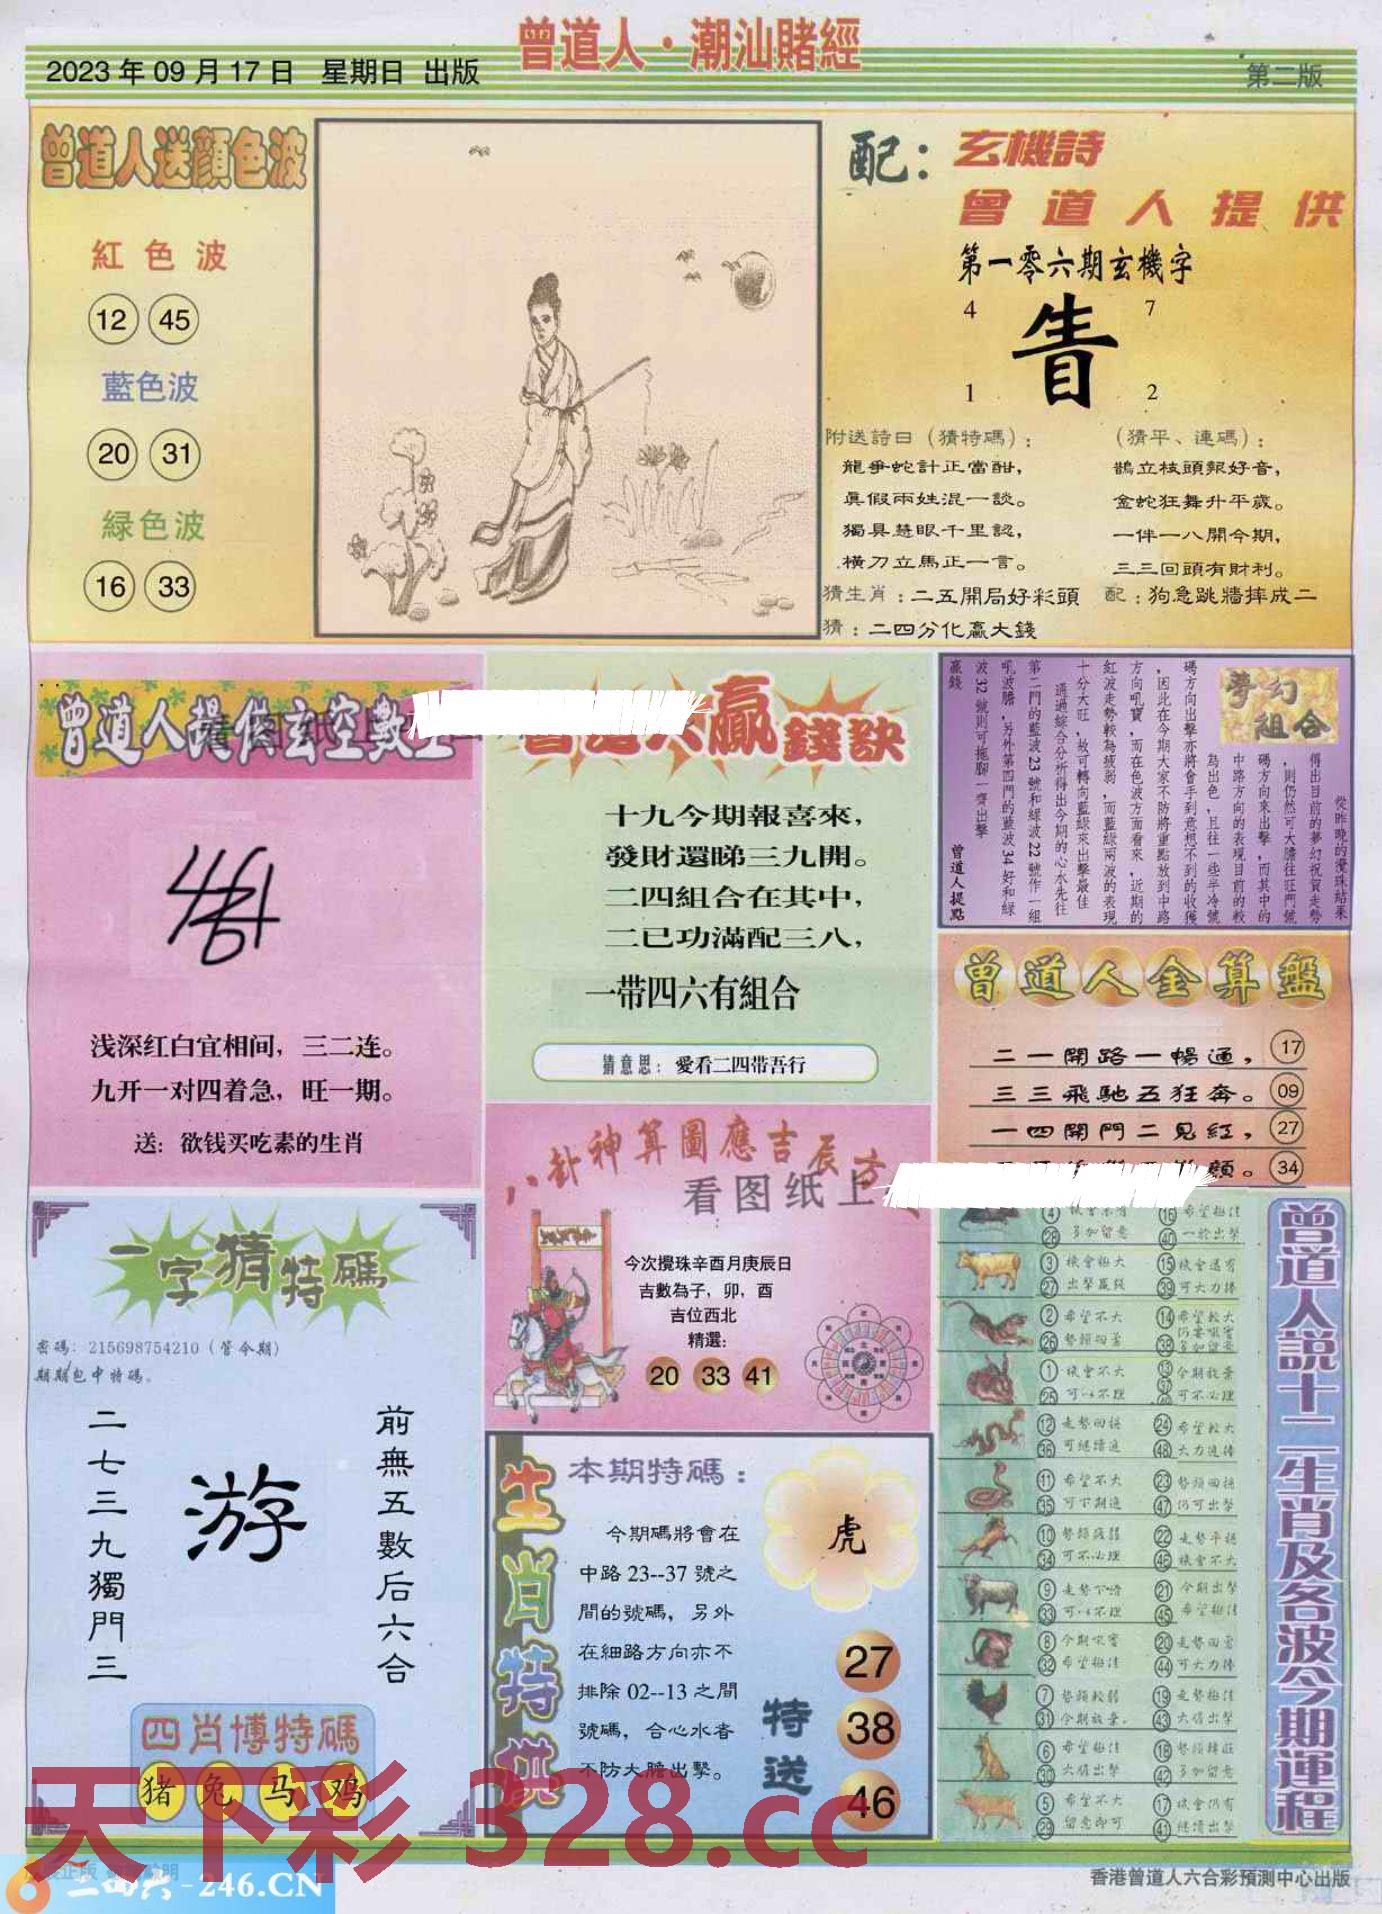 曾道人·潮汕賭經
2023年09月17日 星期日 出版
第二版
曾道人送顔色波
紅色波
12 45
藍色波
20 31
緑色波
16 33
配：玄機詩
曾道人提供
第一零六期玄機字
4 7
1 2
附送詩曰（猜特碼）：
龍爭蛇計正當酣，
真假兩姓混一談。
獨具慧眼千里認，
橫刀立馬正一言。
猜生肖：二五開局好彩頭
猜：二四分化贏大錢
（猜平、連碼）：
鵲立枝頭報好音，
金蛇狂舞升平歲。
一伴一八開今期，
三三回頭有財利。
配：狗急跳牆摔成二
曾道人提供玄空數
浅深红白宜相间，三二连。
九开一对四着急，旺一期。
送：欲钱买吃素的生肖
贏錢訣
十九今期報喜來，
發財還睇三九開。
二四組合在其中，
二已功滿配三八，
一带四六有組合
猜意思：愛看二四带吾行
夢幻組合
從昨晚的攪珠結果
得出目前的夢幻祝賀走勢
，則仍然可大膽往旺門號
碼方向來出擊，而其中的
中路方向的表現目前的較
為出色，且往一些半冷號
碼方向出擊亦將會手到意想不到的收獲
，因此在今期大家不防將重點放到中路
方向吼寶，而在色波方面看來，近期的
紅波走勢較為疲弱，而藍綠兩波的表現
十分大旺，故可轉向藍綠來出擊最佳
通過綜合分析得出今期的心水先往
第二門的藍波23號和綠波22號作一組
吼波膽，另外第四門的藍波34好和綠
波32號則可拖腳一齊出擊
贏錢
曾道人提點
曾道人金算盤
二一開路一暢通，17
三三飛馳五狂奔。09
一四開門二見紅，27
顏。34
八卦神算圖應吉辰方
看图纸上
今次攪珠辛酉月庚辰日
吉數為子，卯，酉
吉位西北
精選：
20 33 41
一字猜特碼
密碼：215698754210（管今期）
期期包中特碼。
前無五數后六合
游
二七三九獨門三
四肖博特碼
猪 兔 马 鸡
生肖特供
本期特碼：
今期碼將會在
中路23--37號之
間的號碼，另外
在細路方向亦不
排除02--13之間
號碼，合心水者
不防大膽出擊。
虎
特送
27
38
46
曾道人説十二生肖及各波今期運程
4 16 希望極佳
28 多加留意 40 一於出擊
3 機會極大 15 機會還有
27 出擊贏錢 39 可大力捧
2 希望不大 14 希望較大
26 勢頭四著 38
1 機會不大 13 今期放棄
25 可以不理 可不必理
12 走勢回穩 24 希望較大
36 可繼續追 48 大力追捧
11 希望不大 23 勢頭回穩
35 可下期追 47 仍可出擊
10 勢頭疲弱 22 走勢平穩
34 可不必理 46 機會不大
9 走勢下滑 21 今期出擊
33 可以不理 45 希望極佳
8 今期吼寶 20 走勢回勇
32 希望極佳 44 可大力捧
7 勢頭較弱 19 走勢極佳
31 今期放棄。 43 大膽出擊
6 希望極佳 18 勢頭轉旺
30 大膽出擊 42 多加留意
5 希望不大 17 機會仍有
29 留意即可 41 繼續出擊
天下彩 328.cc
二四六-246.CN
香港曾道人六合彩預測中心出版